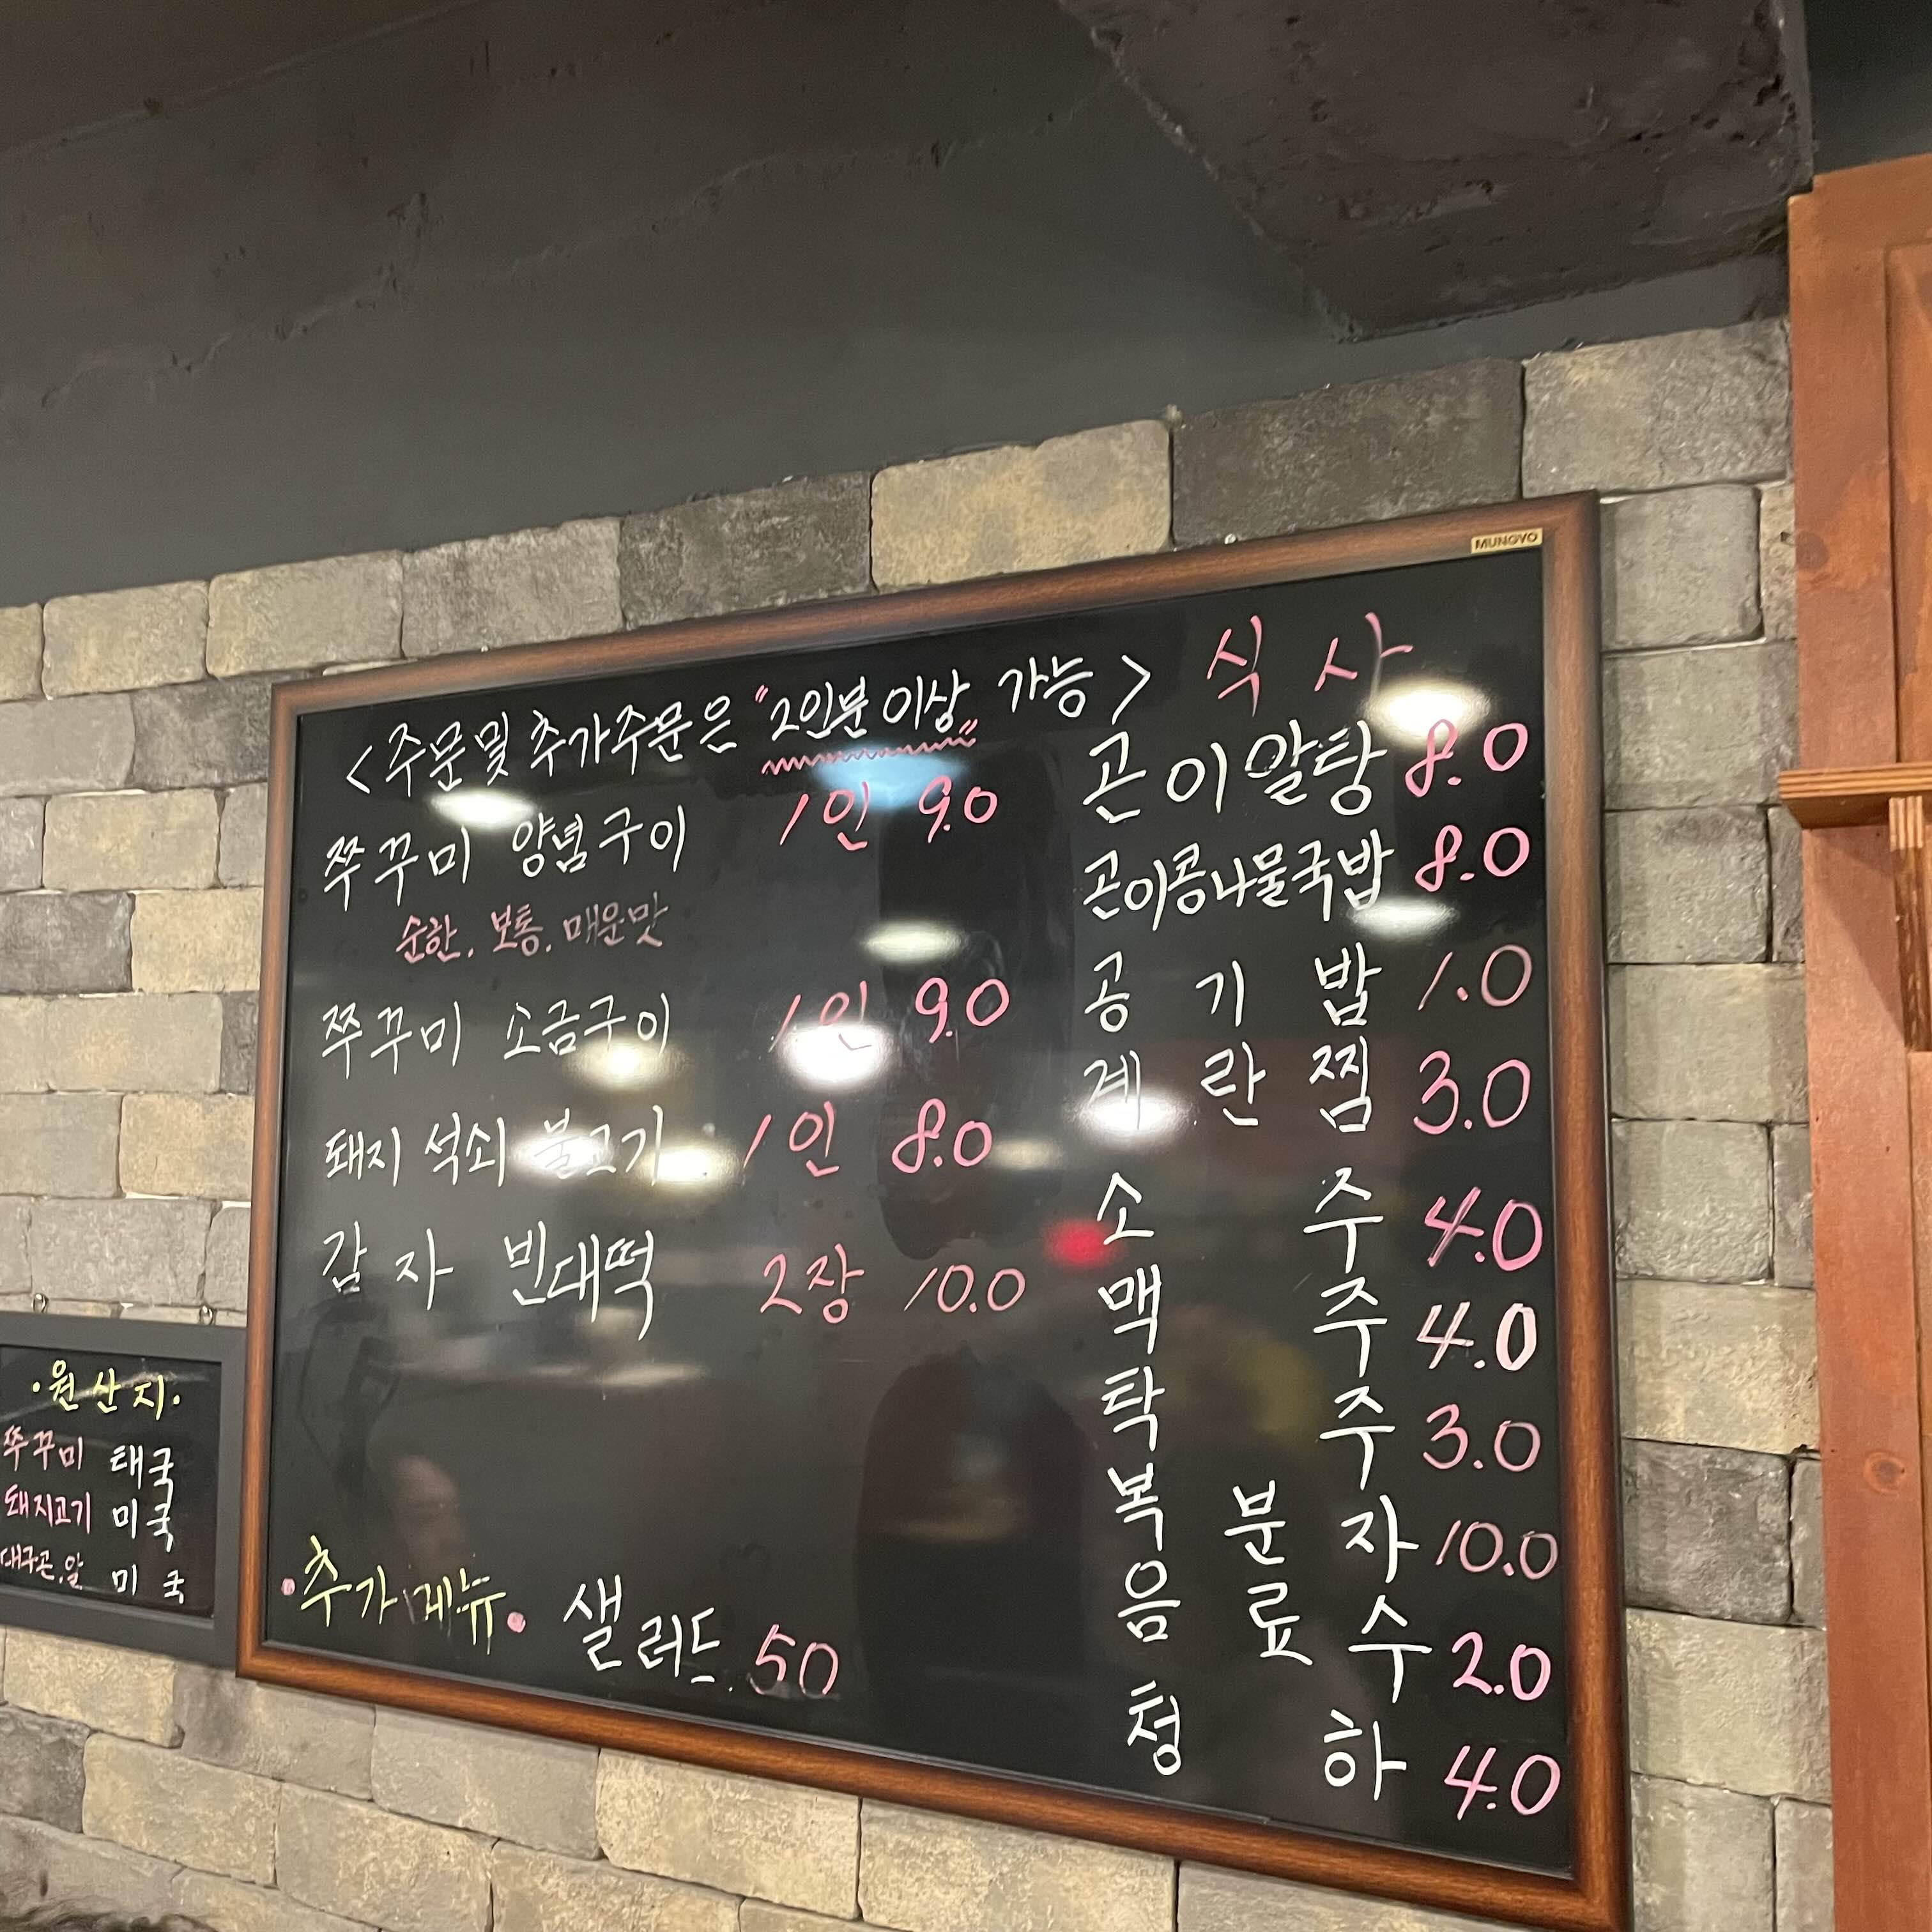 MUNGYO
<주문및 추가주문은 "2인분 이상" 가능>
쭈꾸미 양념구이 1인 9.0
순한. 보통. 매운맛
쭈꾸미 소금구이 1인 9.0
돼지 석쇠 불고기 1인 8.0
감자 빈대떡 2장 10.0
•추가메뉴• 샐러드. 50
식사
곤이알탕 8.0
곤이콩나물국밥 8.0
공기밥 1.0
계란찜 3.0
소주 4.0
맥주 4.0
탁주 3.0
복분자 10.0
음료수 2.0
청하 4.0
•원산지•
쭈꾸미 태국
돼지고기 미국
대구곤.알 미국